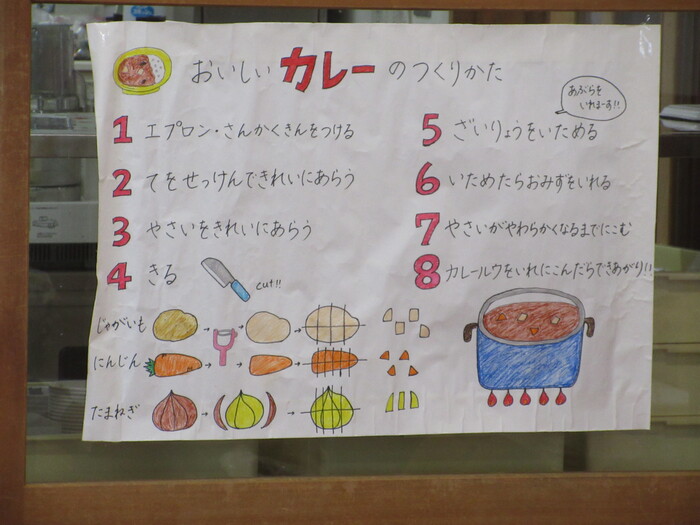 おいしいカレーのつくりかた
1 エプロン・さんかくきんをつける
2 てをせっけんできれいにあらう
3 やさいをきれいにあらう
4 きる
cut!!
じゃがいも
にんじん
たまねぎ
あぶらを
いれまーす!!
5 ざいりょうをいためる
6 いためたらおみずをいれる
7 やさいがやわらかくなるまでにこむ
8 カレールウをいれにこんだらできあがり!!